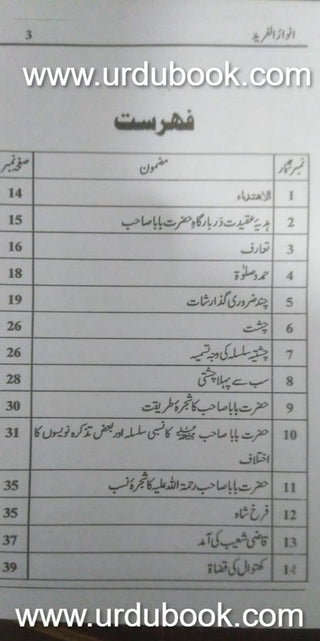 3 انوار الفرید
www.urdubook.com
فہرست
نمبر شمار مضمون صفحہ نمبر
1 الاھتداء 14
2 ہدیۂ عقیدت در بارگاہِ حضرت بابا صاحب 15
3 تعارف 16
4 حمد وصلوٰۃ 18
5 چند ضروری گذارشات 19
6 چشت 26
7 چشتیہ سلسلہ کی وجہ تسمیہ 26
8 سب سے پہلا چشتی 28
9 حضرت بابا صاحب کا شجرۂ طریقت 30
10 حضرت بابا صاحب کا نسبی سلسلہ اور بعض تذکرہ نویسوں کا 31
اختلاف
11 حضرت بابا صاحب رحمۃ اللہ علیہ کا شجرۂ نسب 35
12 فرخ شاہ 35
13 قاضی شعیب کی آمد 37
14 کھتوال کی قضاۃ 39
www.urdubook.com